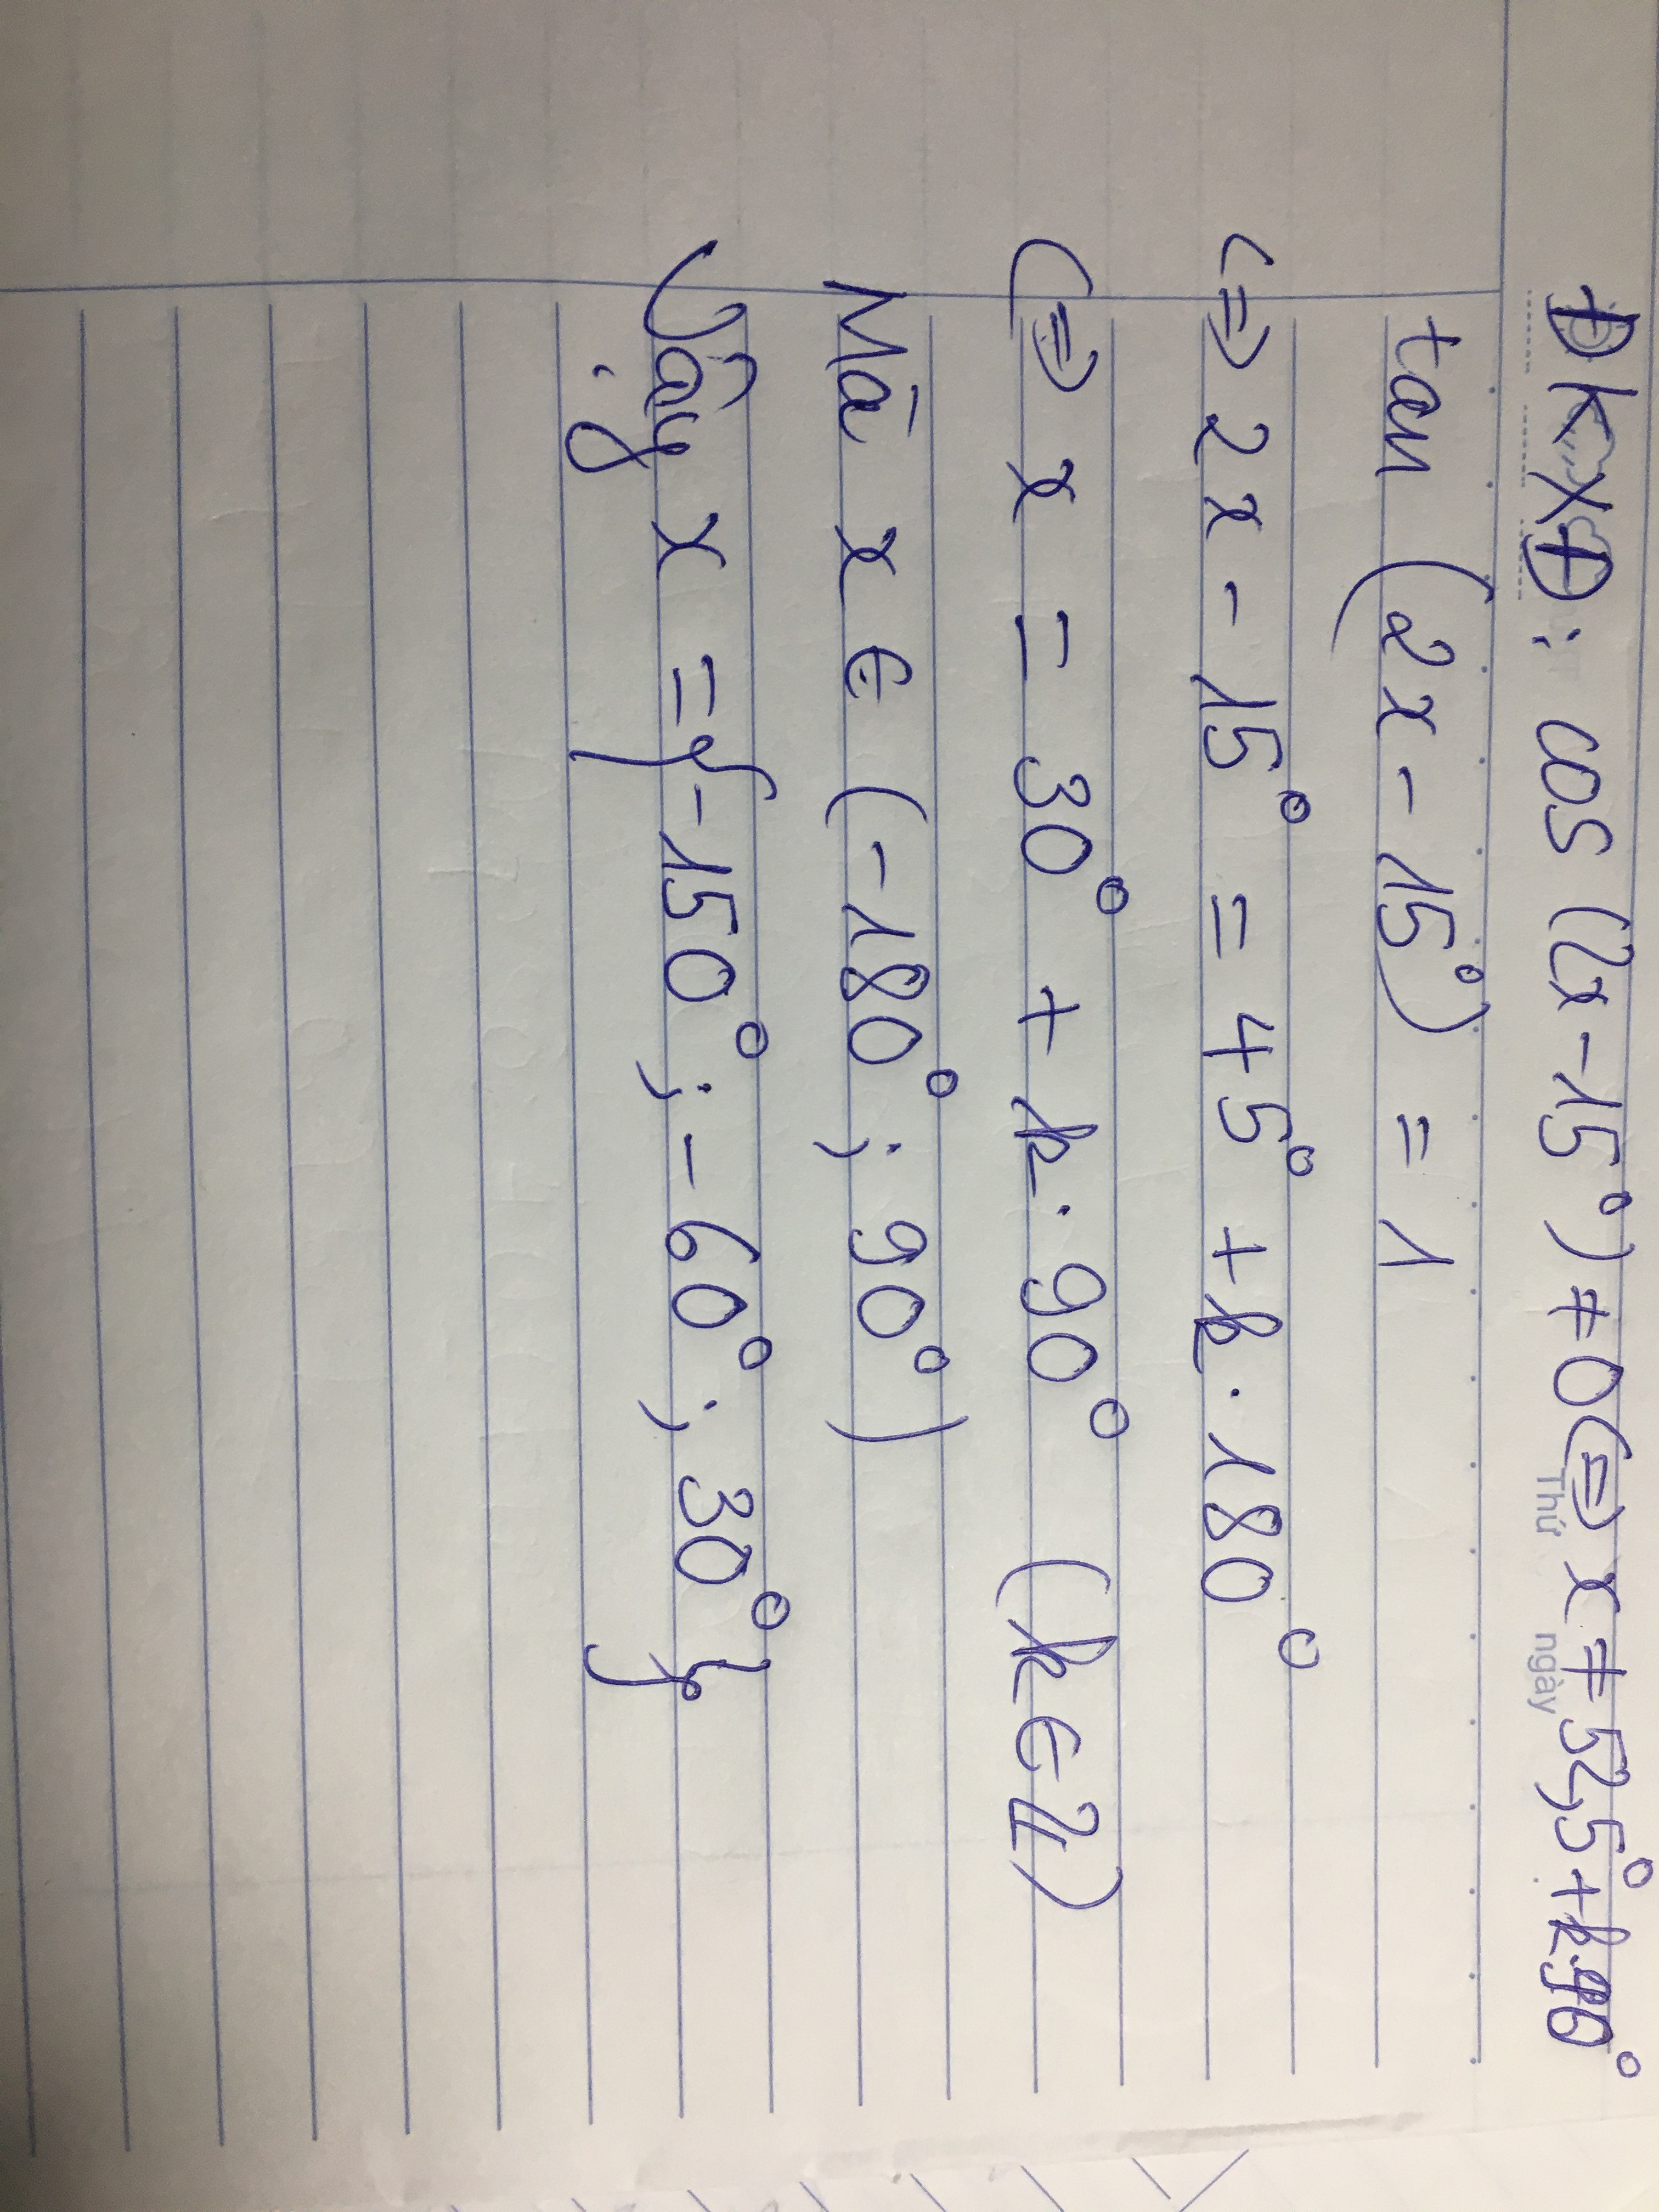 ĐKXĐ: cos (2x - 15°) ≠ 0 <=> x ≠ 52,5° + k.90°
Thứ ngày
tan (2x - 15°) = 1
<=> 2x - 15° = 45° + k . 180°
<=> x = 30° + k . 90° (k ∈ Z)
Mà x ∈ (-180° ; 90°)
Vậy x = {-150° ; -60° ; 30°}